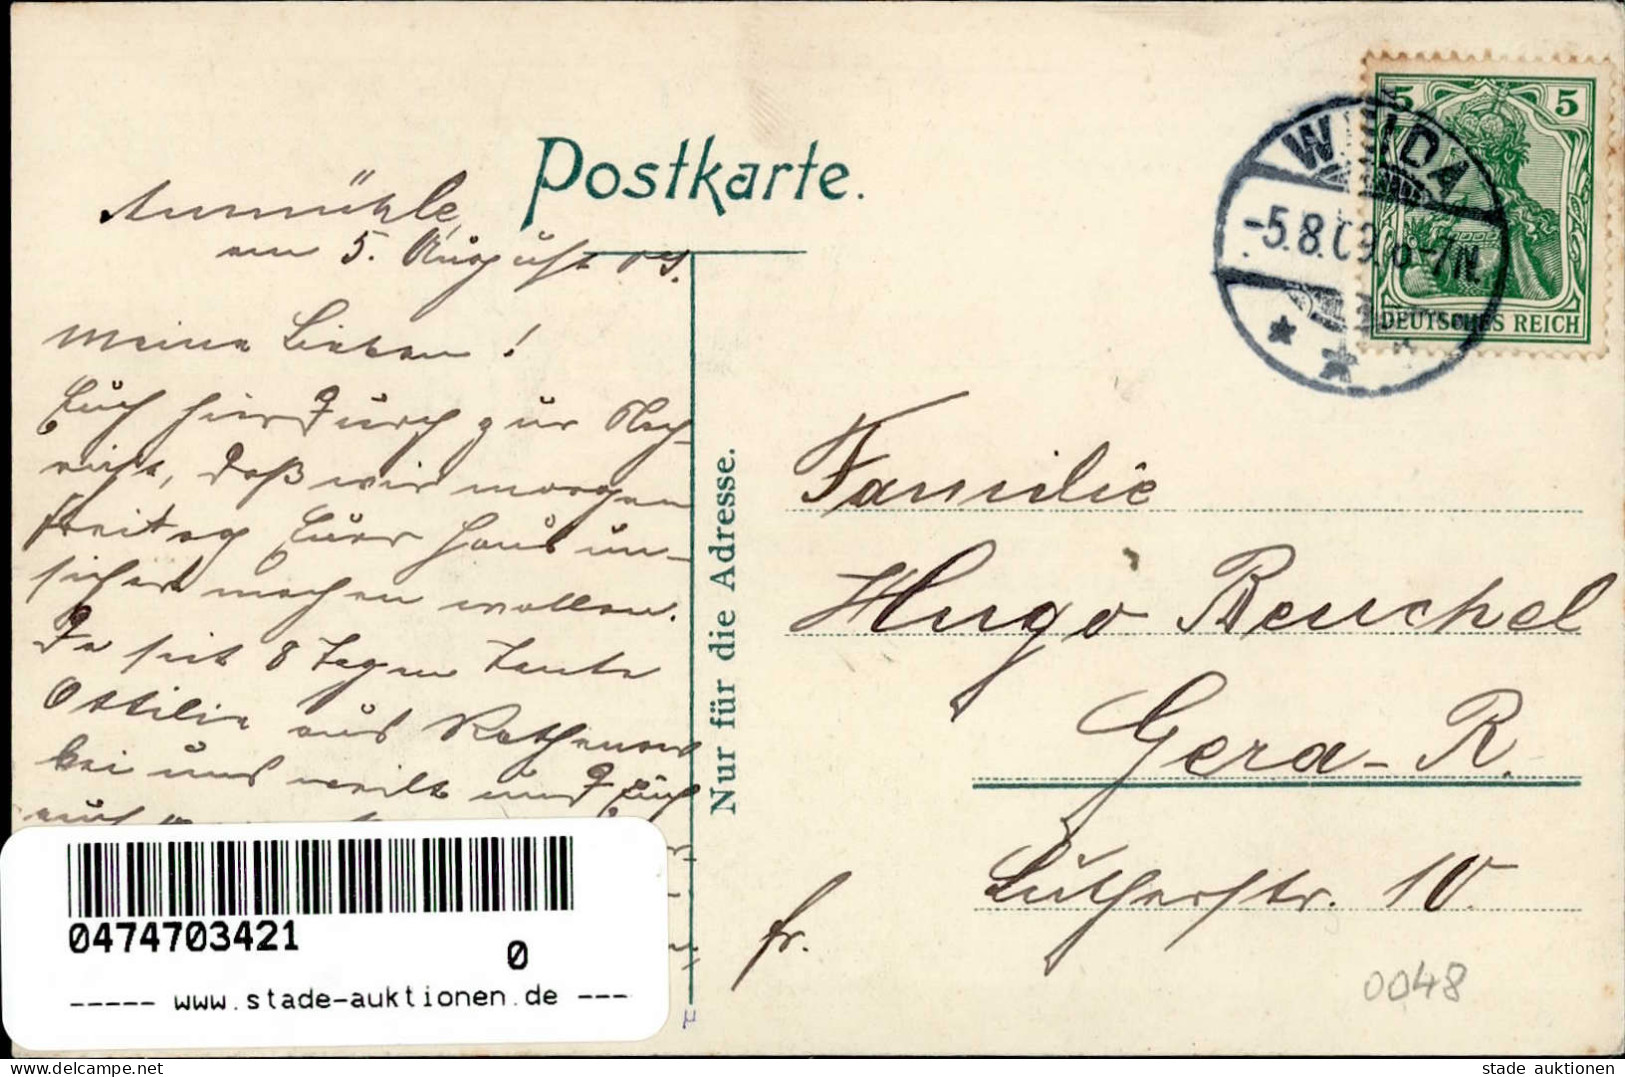 Postkarte.
Aumühle,
am 5. August 09.
Meine Lieben!
Euch hierdurch zur Nach-
richt, daß wir morgen
Freitag Euer Haus un-
sicher machen wollen.
Da seit 8 Tagen Tante
Ottilie aus Rathenow
bei uns weilt und Euch
auch
Nur für die Adresse.
WEIDA
-5.8.09.6-7N.
5 5
DEUTSCHES REICH
Familie
Hugo Beuchel
Gera-R.
Lutherstr. 10.
fr.
0048
0474703421
0
----- www.stade-auktionen.de ---
stade auktionen
stade auktionen